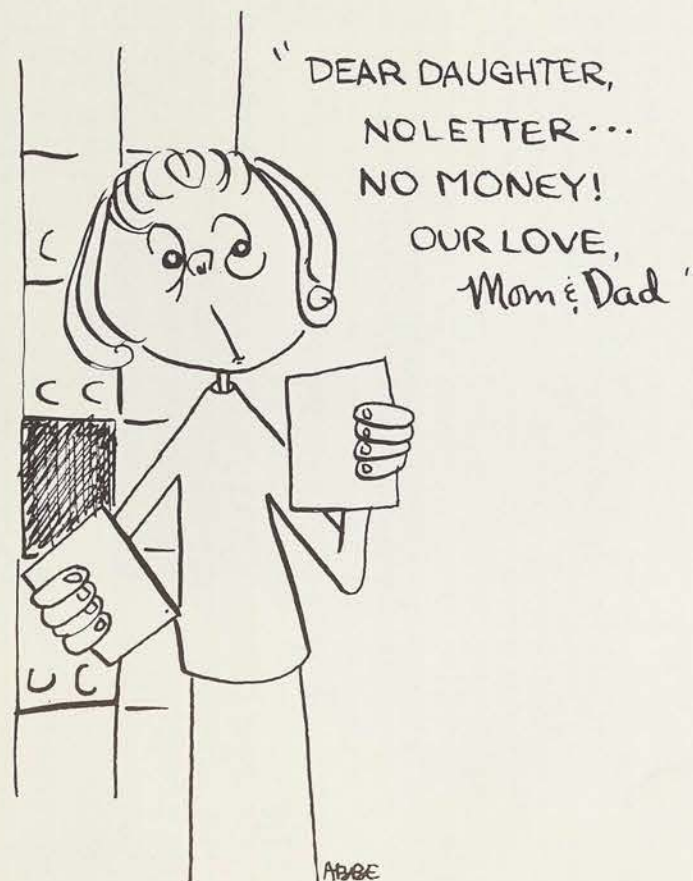 "DEAR DAUGHTER,
NO LETTER...
NO MONEY!
OUR LOVE,
Mom & Dad"
ABBE